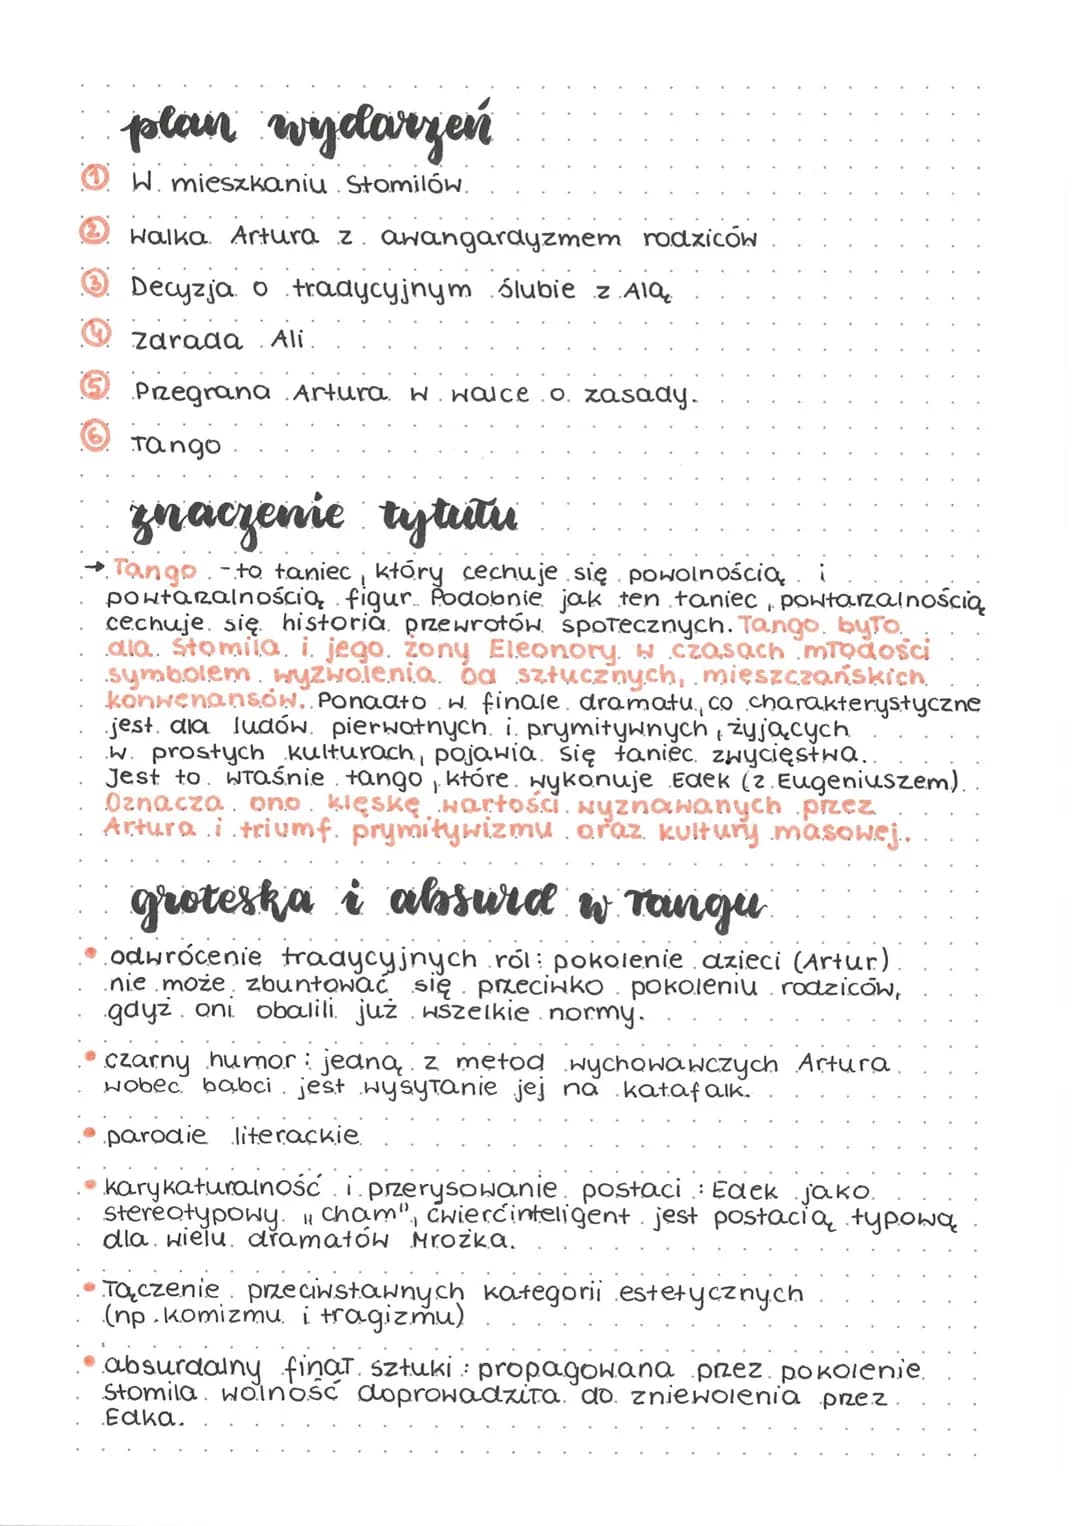 plan wydarzeń
① W mieszkaniu Stomilów.
② Walka Artura z awangardyzmem rodziców
③ Decyzja o tradycyjnym ślubie z Alą
④ Zdrada Ali
⑤ Przegrana Artura w walce o zasady.
⑥ Tango
znaczenie tytułu
→ Tango - to taniec, który cechuje się powolnością i
powtarzalnością figur. Podobnie jak ten taniec, powtarzalnością
cechuje się historia przewrotów społecznych. Tango było
dla Stomila i jego żony Eleonory w czasach młodości
symbolem wyzwolenia od sztucznych, mieszczańskich
konwenansów. Ponadto w finale dramatu, co charakterystyczne
jest dla ludów pierwotnych i prymitywnych, żyjących
w prostych kulturach, pojawia się taniec zwycięstwa.
Jest to właśnie tango, które wykonuje Edek (z Eugeniuszem).
Oznacza ono klęskę wartości wyznawanych przez
Artura i triumf prymitywizmu oraz kultury masowej.
groteska i absurd w Tangu
• odwrócenie tradycyjnych ról: pokolenie dzieci (Artur)
nie może zbuntować się przeciwko pokoleniu rodziców,
gdyż oni obalili już wszelkie normy.
• czarny humor: jedną z metod wychowawczych Artura
wobec babci jest wysyłanie jej na katafalk.
• parodie literackie
• karykaturalność i przerysowanie postaci: Edek jako
stereotypowy „cham", ćwierćinteligent jest postacią typową
dla wielu dramatów Mrożka.
• łączenie przeciwstawnych kategorii estetycznych
(np. komizmu i tragizmu)
• absurdalny finał sztuki: propagowana przez pokolenie
Stomila wolność doprowadziła do zniewolenia przez
Edka.